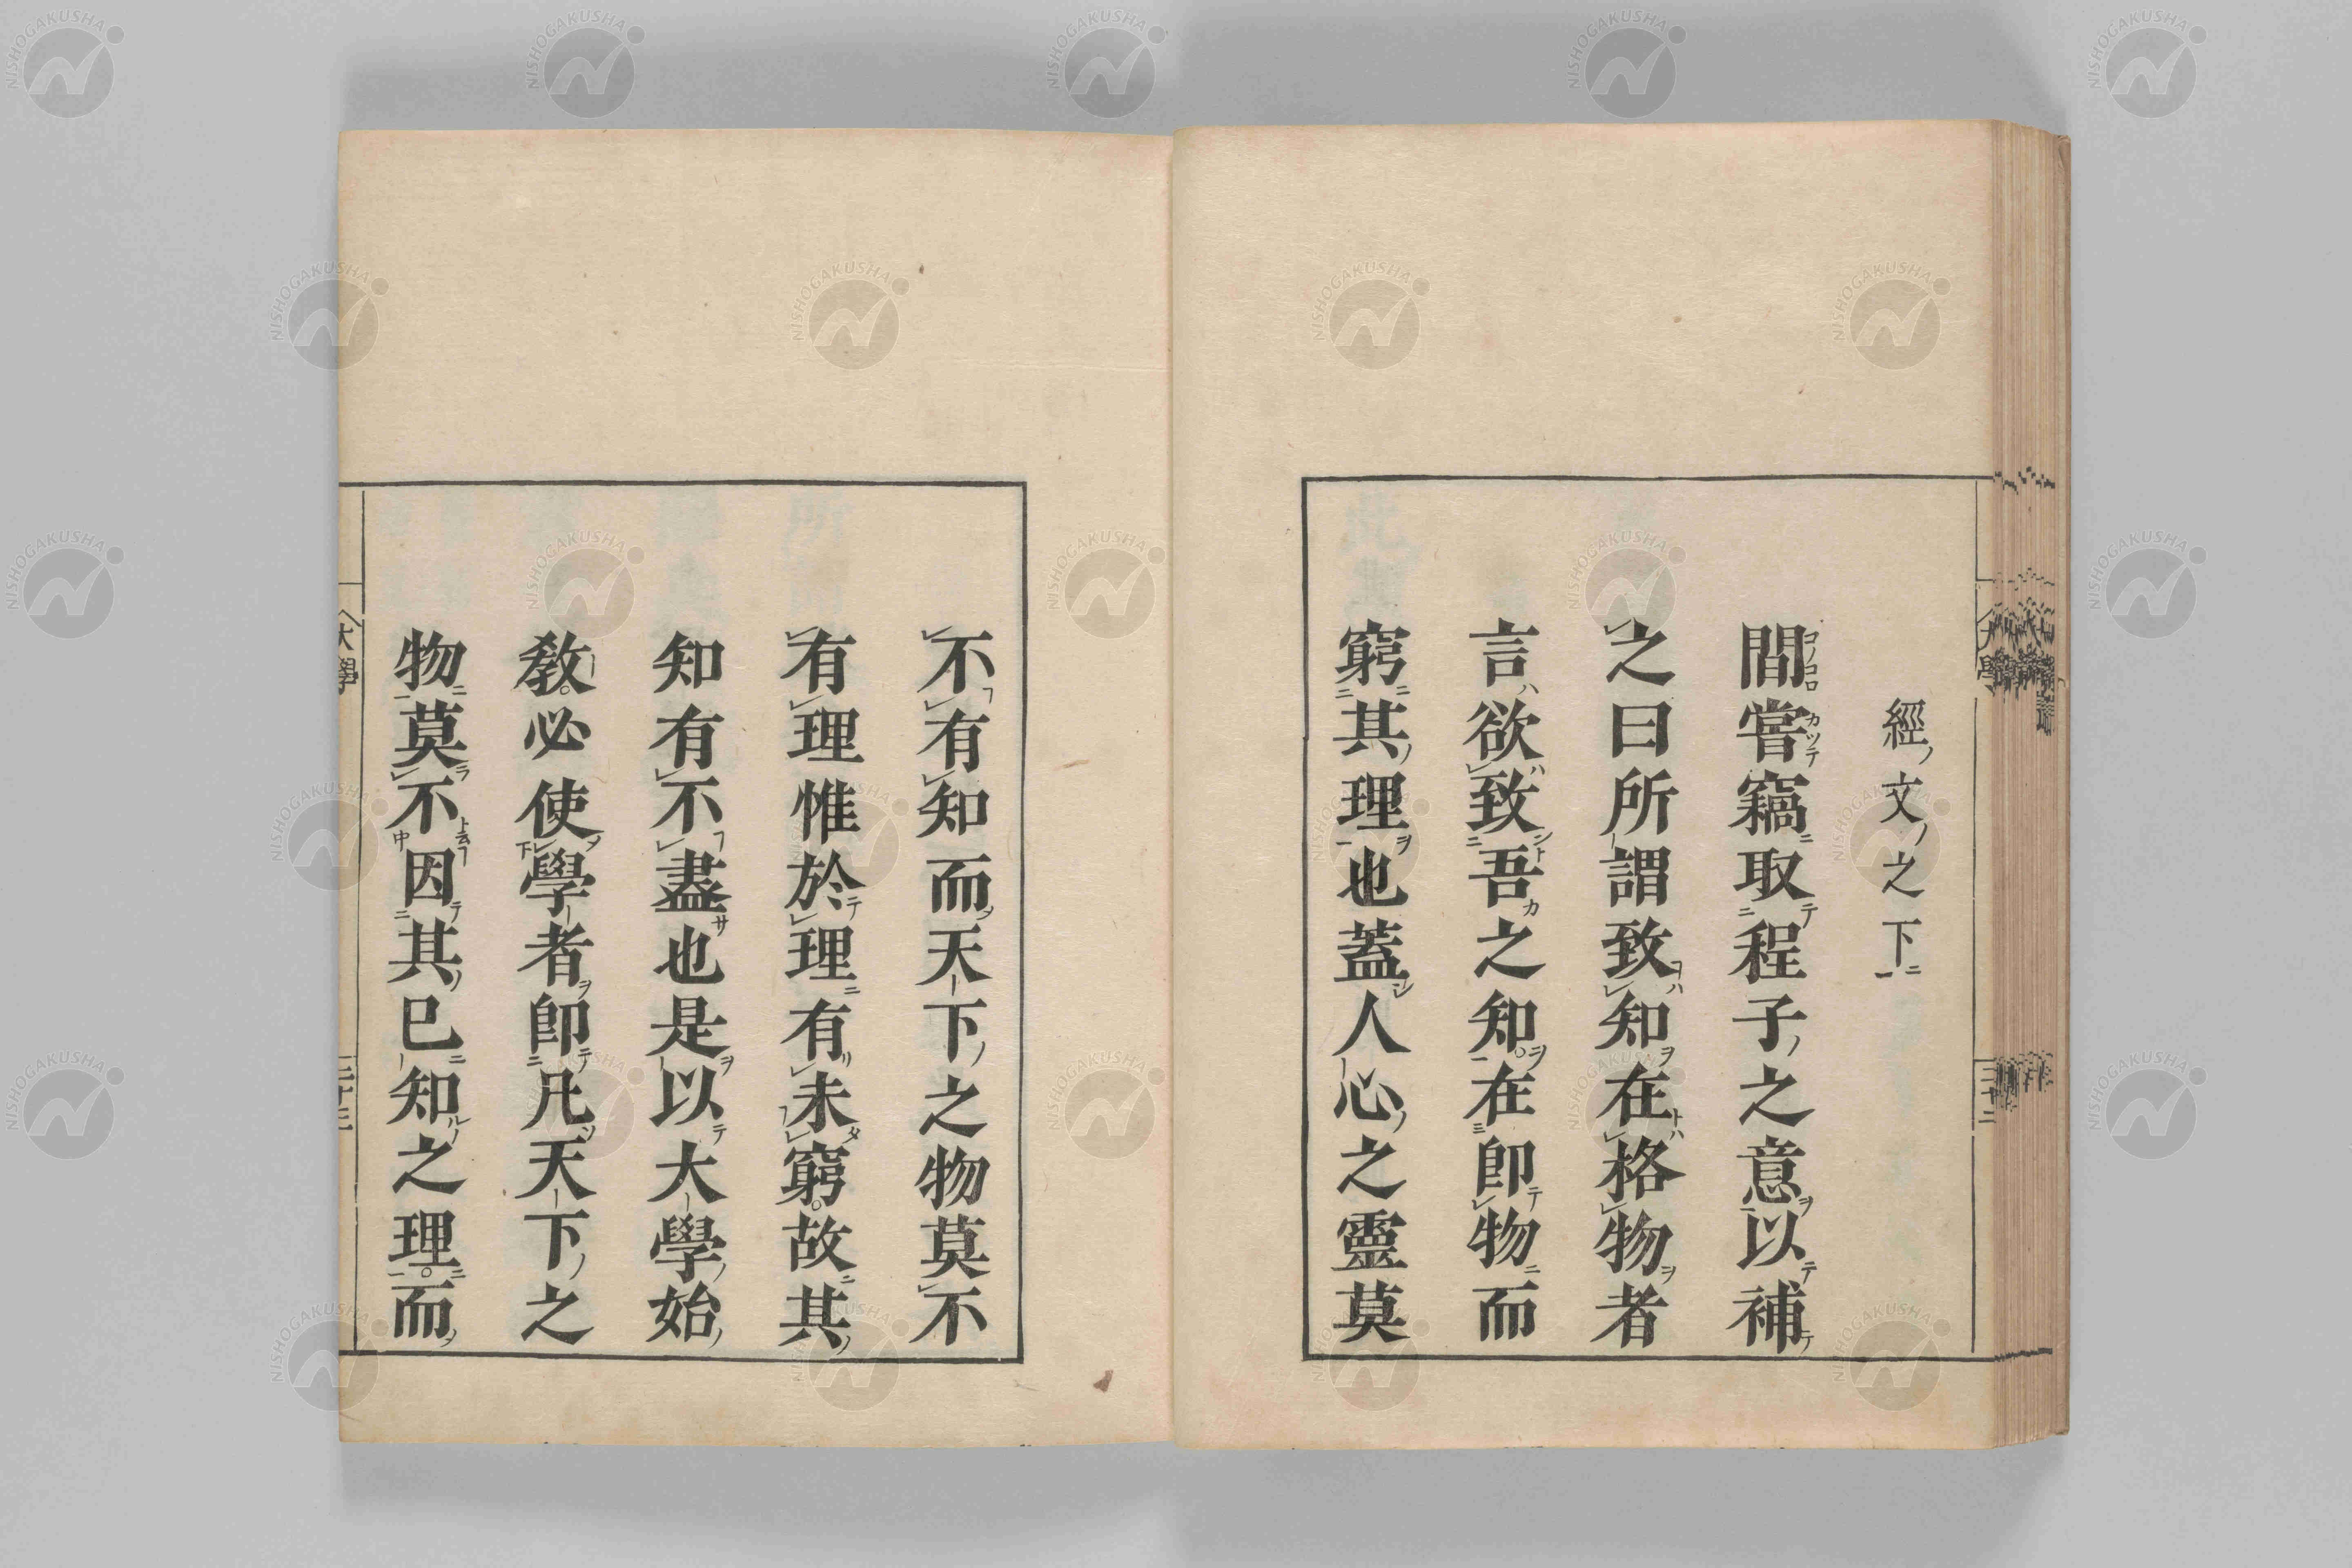 經ノ文ノ之下ニ
間嘗竊取程子之意以補
之曰所謂致知在格物者
言欲致吾之知在卽物而
窮其理也蓋人心之靈莫
不有知而天下之物莫不
有理惟於理有未窮故其
知有不盡也是以大學始
敎必使學者卽凡天下之
物莫不因其已知之理而
大學
NISHOGAKUSHA